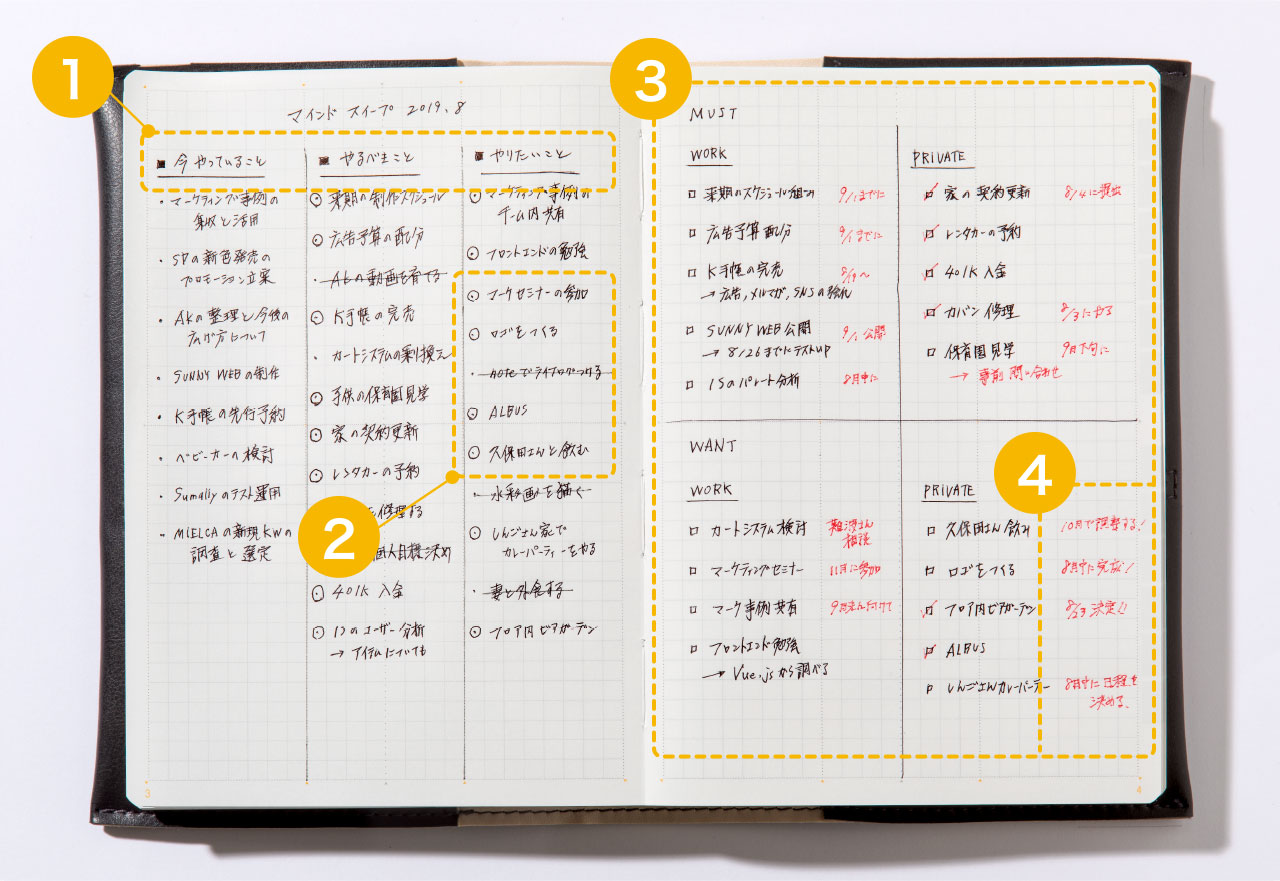 1
マインド スイープ 2019.8
■ 今やっていること
・マーケティング事例の
集収と活用
・SPの新色発売の
プロモーション立案
・AKの整理と今後の
広げ方について
・SUNNY WEBの制作
・K手帳の先行予約
・ベビーカーの検討
・Sumallyのテスト運用
・MIELCAの新規KWの
調査と選定
■ やるべきこと
来期の制作スケジュール
広告予算の配分
・AKの動画を育てる
K手帳の完売
・カートシステムの乗り換え
子供の保育園見学
家の契約更新
レンタカーの予約
を修理する
個人目標決め
401K 入金
ISのユーザー分析
→ アイテムについても
■ やりたいこと
マーケティング事例の
チーム内共有
フロントエンドの勉強
マーケセミナーの参加
ロゴをつくる
・noteでライブログつける
ALBUS
久保田さんと飲む
・水彩画を描く
しんごさん家で
カレーパーティーをやる
・妻と外食する
フロア内ビアガーデン
2
3
3
MUST
WORK
□ 来期のスケジュール組み 9/1までに
□ 広告予算配分 9/1までに
□ K手帳の完売
→ 広告,メルマガ,SNSの強化
□ SUNNY WEB公開 9/1 公開
→ 8/26までにテストup
□ ISのパレート分析 8月中に
PRIVATE
家の契約更新 8/4に提出
レンタカーの予約
401K 入金
カバン修理 8/3にやる
□ 保育園見学 9月下旬に
→ 事前問い合わせ
WANT
WORK
□ カートシステム検討 難波さん
相談
□ マーケティングセミナー 11月に参加
□ マーケ事例共有
□ フロントエンド勉強
→ Vue.jsから調べる
4
PRIVATE
□ 久保田さん飲み 10月で調整する!
□ ロゴをつくる 8月中に完成!
フロア内ビアガーデン 8/23 決定!!
ALBUS
□ しんごさんカレーパーティー 8月中に日程を
決める。
4